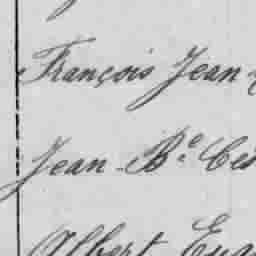 François Jean
Jean-Bᵗᵉ Cés
Albert Eug